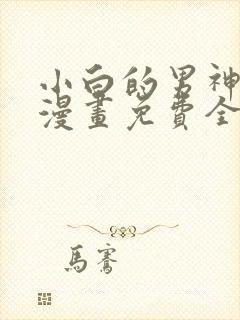 小白的男神
漫畫免費全
馬騫